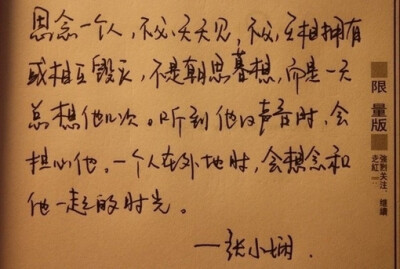 思念一个人，不必天天见，不必互相拥有
或相互毁灭，不是朝思暮想，而是一天
总想他几次。听到他的声音时，会
担心他。一个人在外地时，会想念和
他一起的时光。
—张小娴.
限量版
強烈关注：